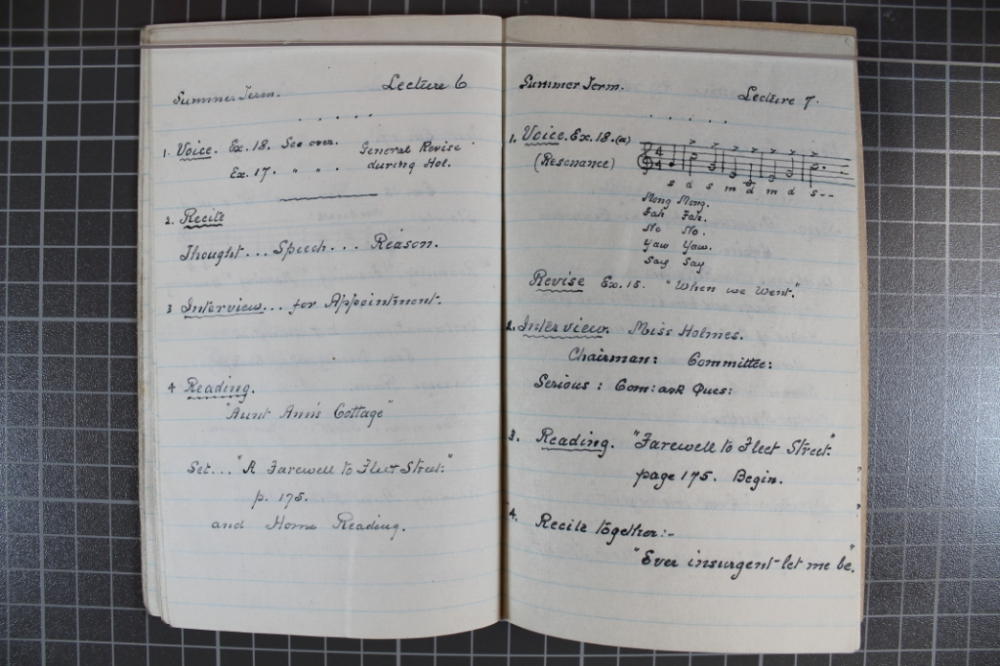 Summer Term. Lecture 6
1. Voice. Ex. 18. See over. General Revise
Ex. 17. " " . during Hol.
2. Recite
Thought... Speech... Reason.
3 Interview... for Appointment.
4 Reading.
"Aunt Ann's Cottage"
Set... "A Farewell to Fleet Street."
p. 175.
and Home Reading.
Summer Term. Lecture 7.
1. Voice. Ex. 18. (a)
(Resonance)
4 4
s d s m d m d s - -
Mong Mong.
Fah Fah.
No No.
Yaw Yaw.
Say Say
Revise Ex. 15. "When we Went."
2. Interview. Miss Holmes.
Chairman: Committee:
Serious: Com: ask Ques:
3. Reading. "Farewell to Fleet Street."
page 175. Begin.
4. Recite together:-
"Ever insurgent let me be."